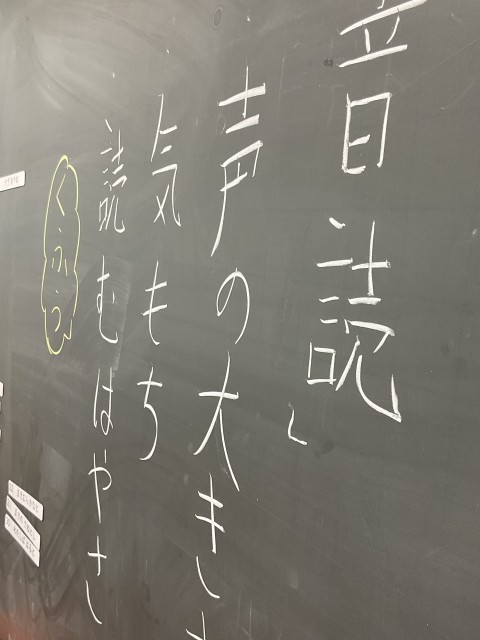 音読
声の大きさ
気もち
読むはやさ
くふう